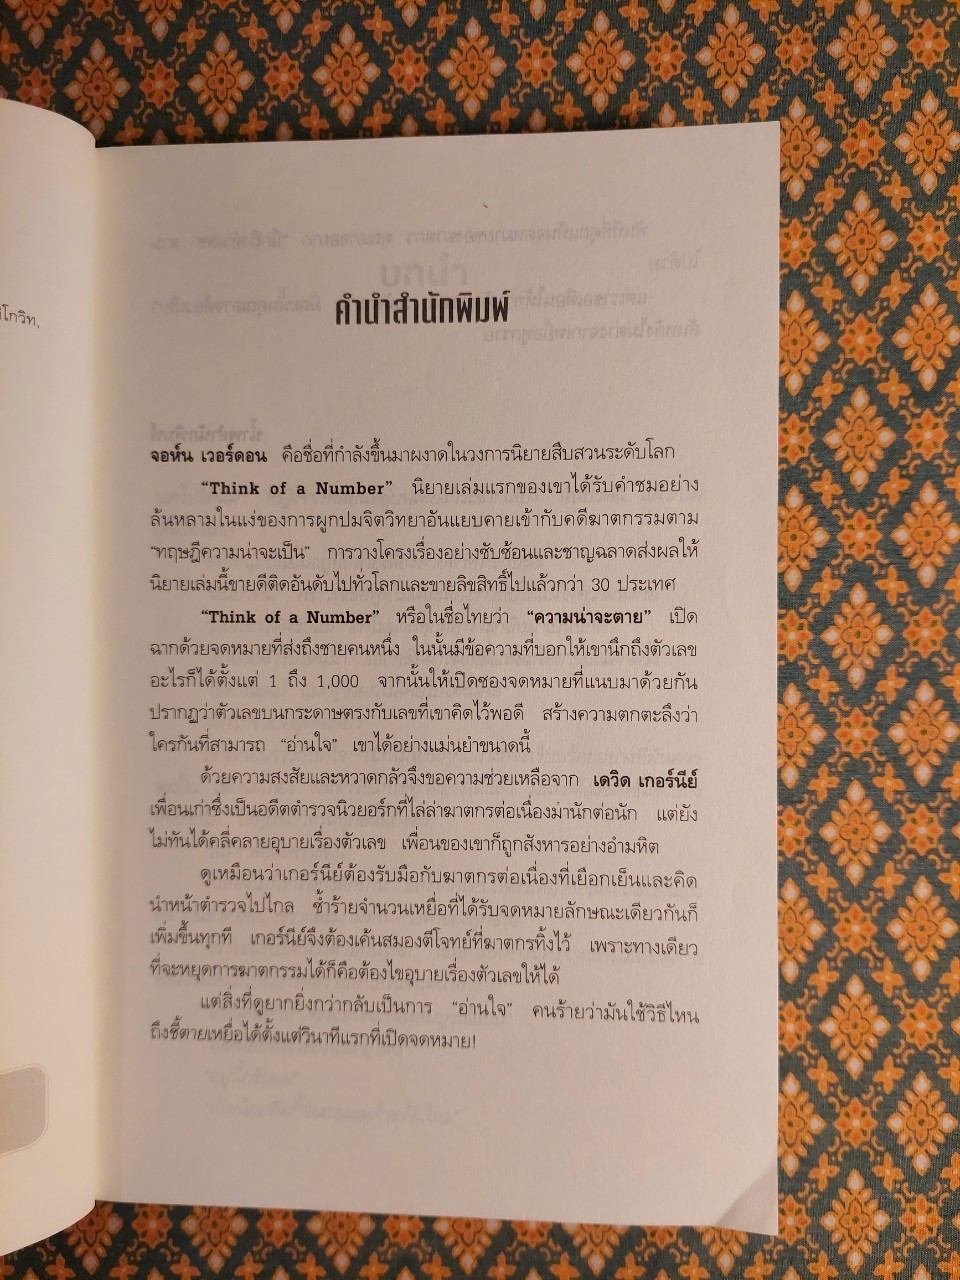 โกวิท.
คำนำสำนักพิมพ์
จอห์น เวอร์ดอน คือชื่อที่กำลังขึ้นมาผงาดในวงการนิยายสืบสวนระดับโลก
“Think of a Number” นิยายเล่มแรกของเขาได้รับคำชมอย่าง
ล้นหลามในแง่ของการผูกปมจิตวิทยาอันแยบคายเข้ากับคดีฆาตกรรมตาม
“ทฤษฎีความน่าจะเป็น” การวางโครงเรื่องอย่างซับซ้อนและชาญฉลาดส่งผลให้
นิยายเล่มนี้ขายดีติดอันดับไปทั่วโลกและขายลิขสิทธิ์ไปแล้วกว่า 30 ประเทศ
“Think of a Number” หรือในชื่อไทยว่า “ความน่าจะตาย” เปิด
ฉากด้วยจดหมายที่ส่งถึงชายคนหนึ่ง ในนั้นมีข้อความที่บอกให้เขานึกถึงตัวเลข
อะไรก็ได้ตั้งแต่ 1 ถึง 1,000 จากนั้นให้เปิดซองจดหมายที่แนบมาด้วยกัน
ปรากฏว่าตัวเลขบนกระดาษตรงกับเลขที่เขาคิดไว้พอดี สร้างความตกตะลึงว่า
ใครกันที่สามารถ “อ่านใจ” เขาได้อย่างแม่นยำขนาดนี้
ด้วยความสงสัยและหวาดกลัวจึงขอความช่วยเหลือจาก เดวิด เกอร์นีย์
เพื่อนเก่าซึ่งเป็นอดีตตำรวจนิวยอร์กที่ไล่ล่าฆาตกรต่อเนื่องมานักต่อนัก แต่ยัง
ไม่ทันได้คลี่คลายอุบายเรื่องตัวเลข เพื่อนของเขาก็ถูกสังหารอย่างอำมหิต
ดูเหมือนว่าเกอร์นีย์ต้องรับมือกับฆาตกรต่อเนื่องที่เยือกเย็นและคิด
นำหน้าตำรวจไปไกล ซ้ำร้ายจำนวนเหยื่อที่ได้รับจดหมายลักษณะเดียวกันก็
เพิ่มขึ้นทุกที เกอร์นีย์จึงต้องเค้นสมองตีโจทย์ที่ฆาตกรทิ้งไว้ เพราะทางเดียว
ที่จะหยุดการฆาตกรรมได้ก็คือต้องไขอุบายเรื่องตัวเลขให้ได้
แต่สิ่งที่ดูยากยิ่งกว่ากลับเป็นการ “อ่านใจ” คนร้ายว่ามันใช้วิธีไหน
ถึงชี้ตายเหยื่อได้ตั้งแต่วินาทีแรกที่เปิดจดหมาย!